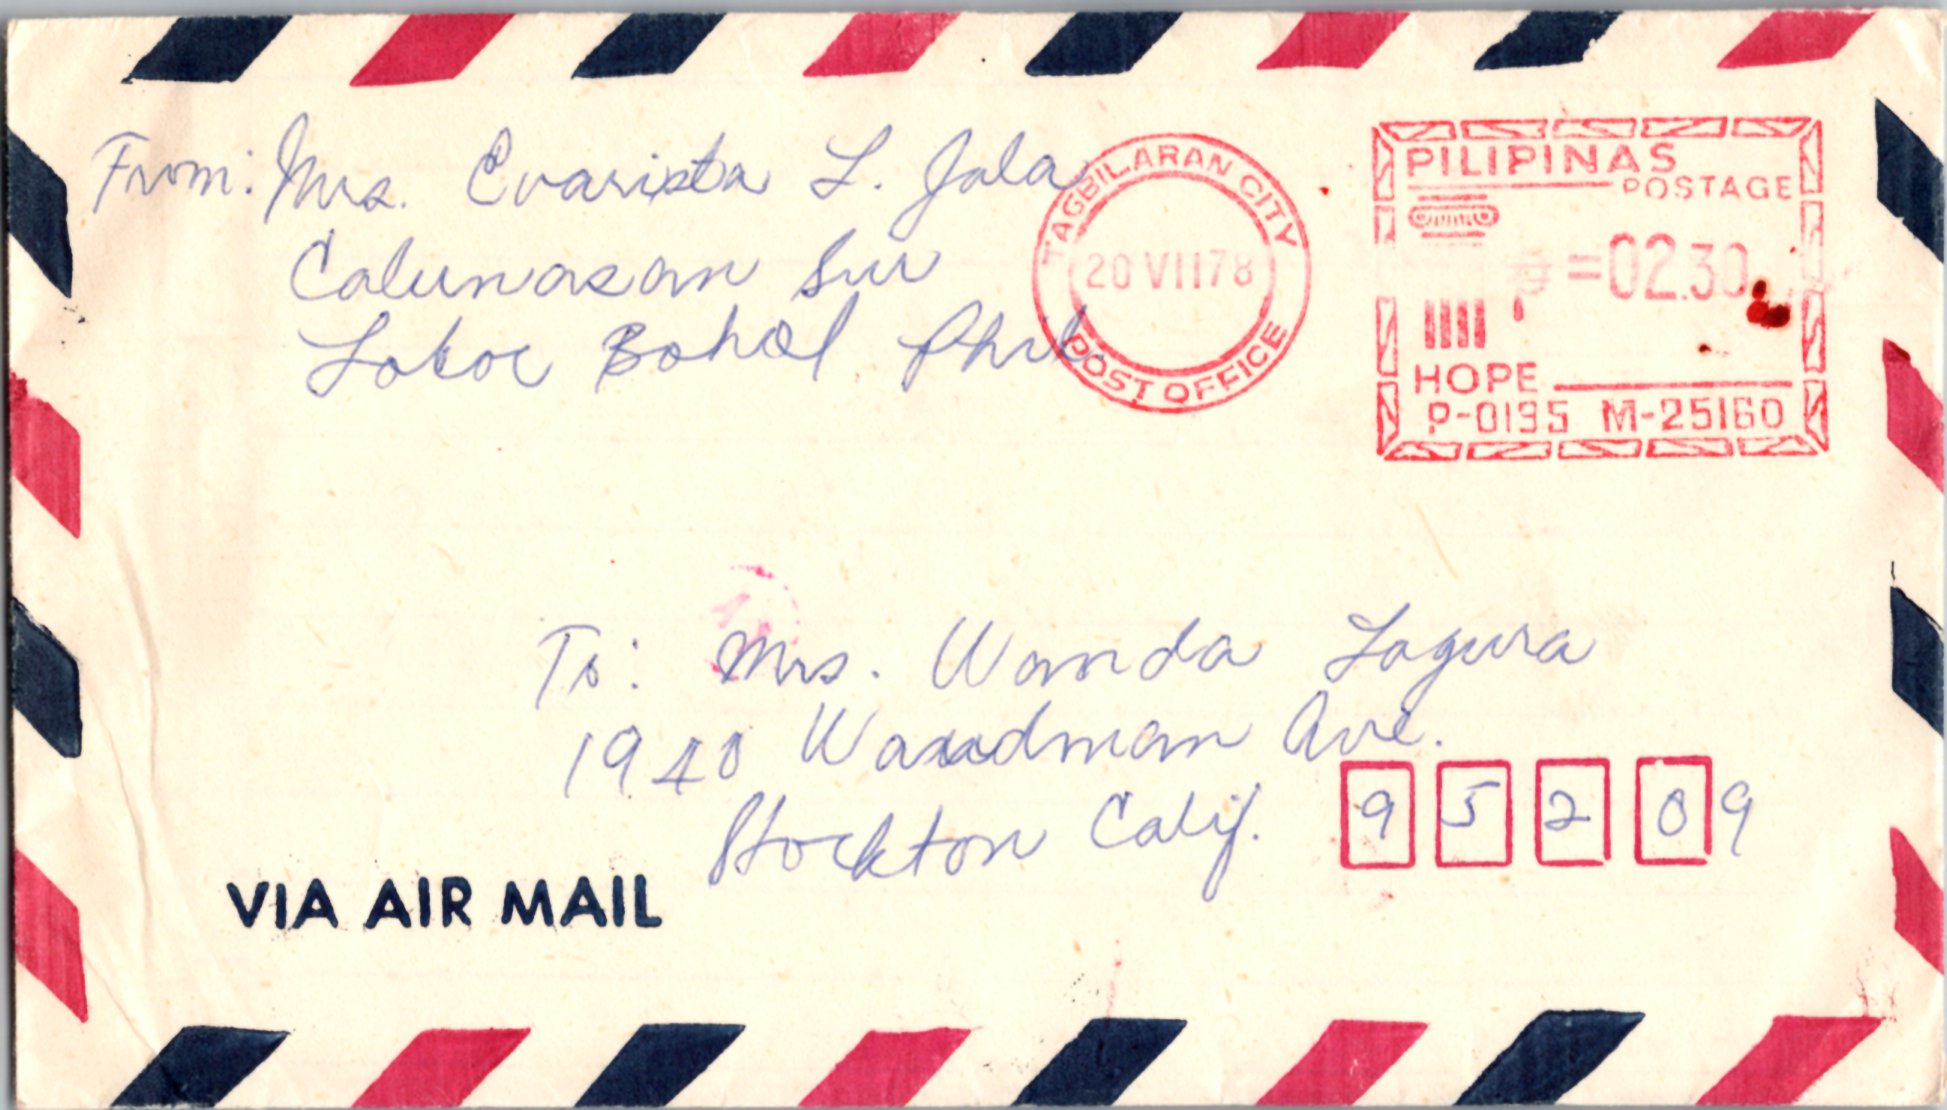 From: Mrs. Evarista L. Jala
Calunasan Sur
Loboc Bohol Phil.
TAGBILARAN CITY
20 VII 78
POST OFFICE
PILIPINAS
POSTAGE
=02.30
HOPE
P-0195 M-25160
To: Mrs. Wanda Lagura
1940 Woodman Ave.
Stockton Calif. 95209
VIA AIR MAIL